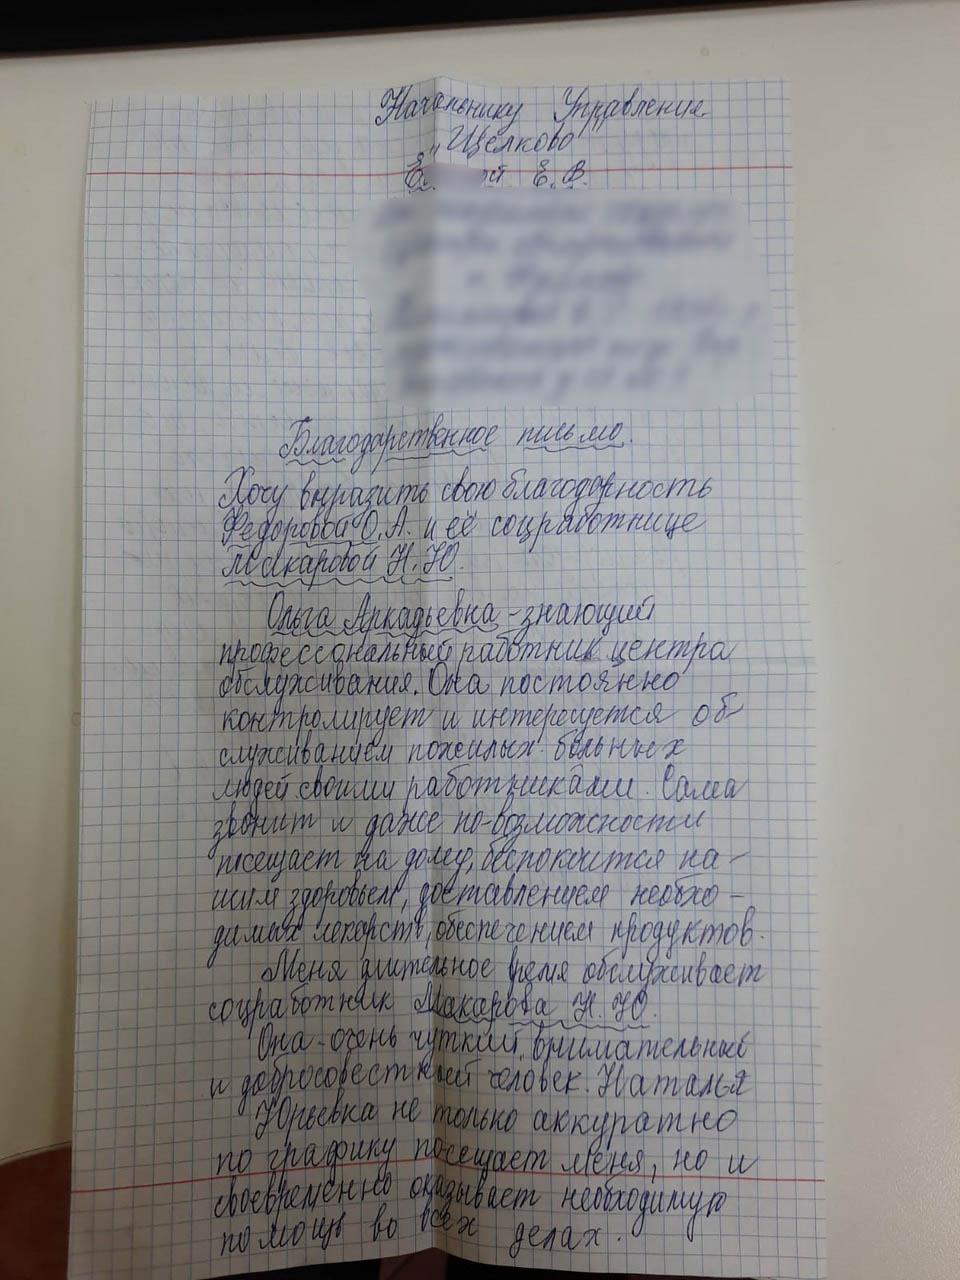 Начальнику Управления
"Щелково
Е. Ф.
Благодарственное письмо.
Хочу выразить свою благодарность
Федоровой О.А. и её соцработнице
Макаровой Н.Ю.
Ольга Аркадьевна - знающий
профессональный работник центра
обслуживания. Она постоянно
контролирует и интересуется об-
служиванием пожилых больных
людей своими работниками. Сама
звонит и даже по-возможности
посещает на дому, беспокоится на-
шим здоровьем, доставлением необхо-
димых лекарств, обеспечением продуктов.
Меня длительное время обслуживает
соцработник Макарова Н.Ю.
Она - очень чуткий, внимательный
и добросовестный человек. Наталья
Юрьевна не только аккуратно
по графику посещает меня, но и
своевременно оказывает необходимую
помощь во всех делах.